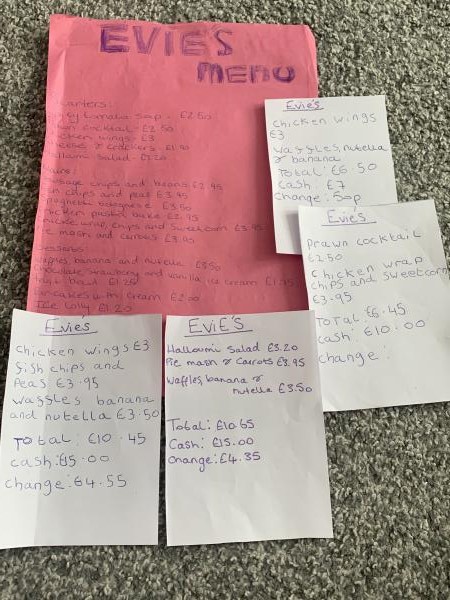 EVIE'S
MENU
tomato soup - £2.50
cocktail - £2.50
wings - £3
& crackers - £1.90
salad -
chips and beans £2.95
chips and peas £3.95
bolognese £3.50
chicken pasta bake £2.95
wrap, chips and sweetcorn £3.95
pie mash and carrots £3.90
waffles banana and nutella £3.50
chocolate, strawberry and vanilla ice cream £1.75
bowl £1.25
pancakes with cream £2.00
Ice lolly £1.20
Evie's
chicken wings
£3
waffles, nutella
& banana
Total: £6.50
Cash: £7
Change: 50p
Evie's
prawn cocktail
£2.50
chicken wrap
chips and sweetcorn
£3.95
Total £6.45
cash: £10.00
change:
Evies
chicken wings £3
fish chips and
Peas £3.95
waffles banana
and nutella £3.50
Total: £10.45
cash: £15.00
change: £4.55
EVIE'S
Halloumi Salad £3.20
Pie mash & Carrots £3.95
Waffles, banana &
nutella £3.50
Total: £10.65
Cash: £15.00
Change: £4.35